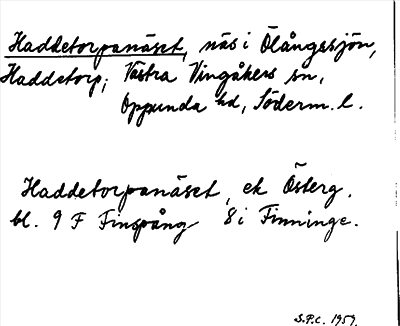 Haddetorpanäset, näs i Ölångssjön,
Haddetorp, Västra Vingåkers sn,
Oppunda hd, Söderm. l.
Haddetorpanäset, ek Österg.
bl. 9 F Finspång 8 i Finninge.
S.P.C. 1959.